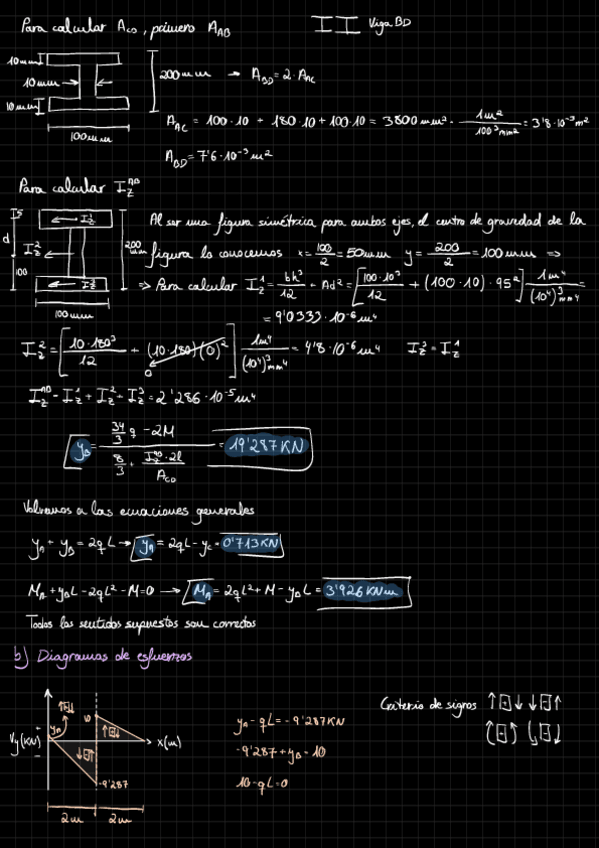 Para calcular A_CD, primero A_AB
Viga BD
10mm
10mm
10mm
100mm
200mm → A_BD = 2·A_AC
A_AC = 100·10 + 180·10 + 100·10 = 3800 mm² · 1m²/100³mm² = 3'8·10⁻³ m²
A_BD = 7'6·10⁻³ m²
Para calcular I_Z^AB
5
d
100
I_Z^1
I_Z^2
I_Z^3
200mm
100mm
Al ser una figura simétrica para ambos ejes, el centro de gravedad de la
figura lo conocemos x = 100/2 = 50mm y = 200/2 = 100mm ⇒
⇒ Para calcular I_Z^1 = bh³/12 + Ad² = [100·10³/12 + (100·10)·95²] 1m⁴/(10⁴)³mm⁴ =
= 9'0333·10⁻⁶ m⁴
I_Z^2 = [10·180³/12 + (10·180)(0)²] 1m⁴/(10⁴)³mm⁴ = 4'8·10⁻⁶ m⁴ I_Z^3 = I_Z^1
0
I_Z^AB = I_Z^1 + I_Z^2 + I_Z^3 = 2'286·10⁻⁵ m⁴
y_B = (34/3 q - 2M)/(8/3 + I_Z^AB·2L/A_CD) = 19'287 KN
Volvamos a las ecuaciones generales
y_A + y_B = 2qL → y_A = 2qL - y_C = 0'713 KN
M_A + y_B L - 2qL² - M = 0 → M_A = 2qL² + M - y_B L = 3'926 KNm
Todos los sentidos supuestos son correctos
b) Diagramas de esfuerzos
V_y (KN)
+
-
y_A
10
-9'287
x(m)
2m
2m
y_A - qL = -9'287KN
-9'287 + y_B = 10
10 - qL = 0
Criterio de signos